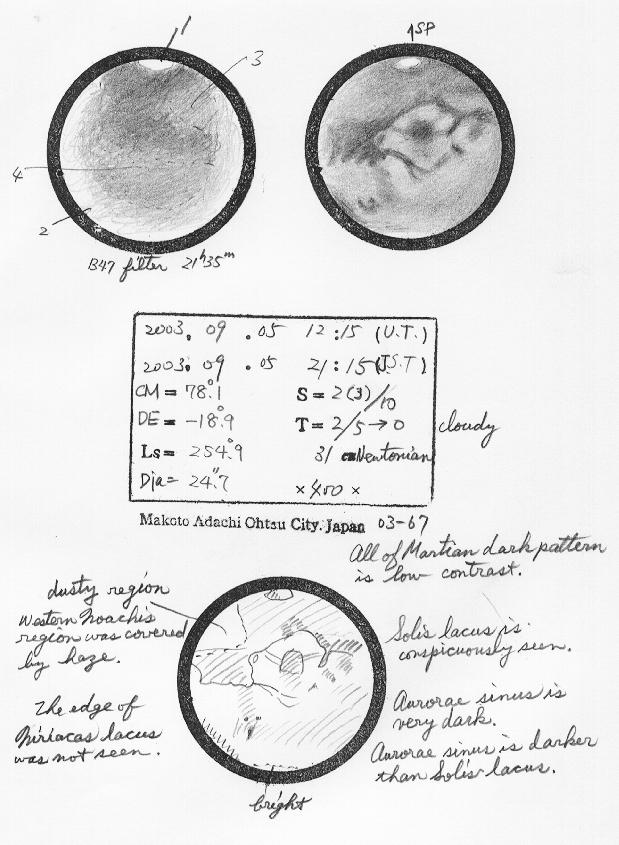 1
3
4
2
B47 filter 21h35m
↑SP
2003. 09 .05 12:15 (U.T.)
2003. 09 .05 21:15 (J.S.T)
CM = 78°.1 S = 2(3)/10
DE = -18°.9 T = 2/5 → 0 cloudy
Ls = 254°.9 31 cm Newtonian
Dia = 24".7 ×400 ×
Makoto Adachi Ohtsu City. Japan 03-67
All of Martian dark pattern
is low contrast.
dusty region
Western Noachis
region was covered
by haze.
The edge of
Niriacas lacus
was not seen.
Solis lacus is
conspicuously seen.
Aurorae sinus is
very dark.
Aurorae sinus is darker
than Solis lacus.
bright